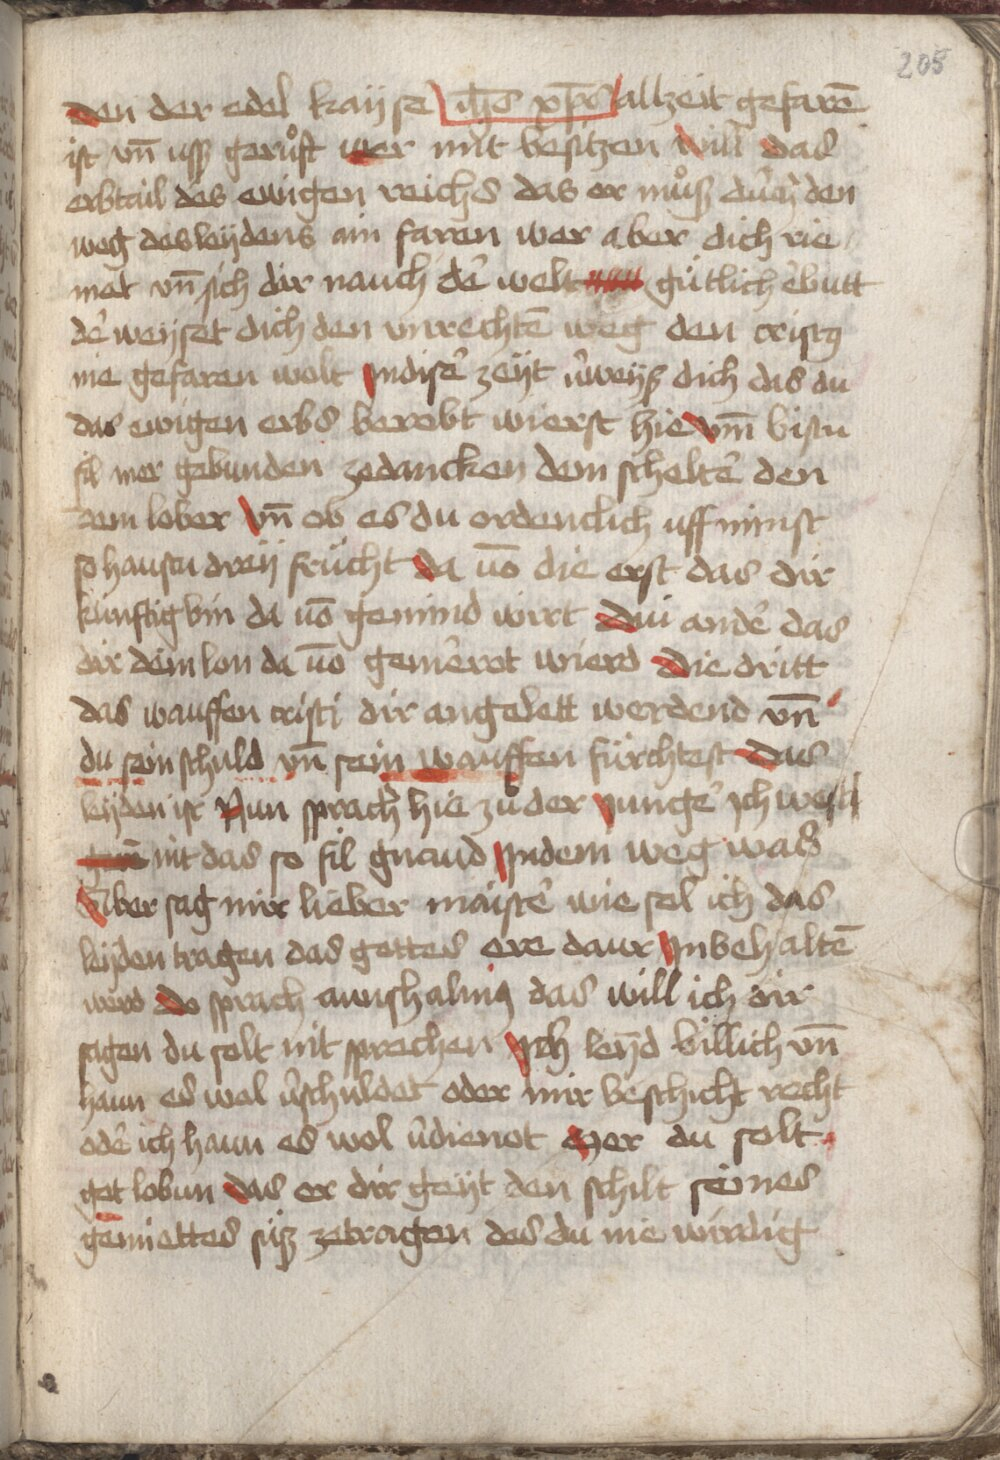 205
den der edel kaÿse ihẽs xp̃s allzeit gefarẽ
ist vñ uſʒ gerůft wer mit besitzen will das
erbtail des ewigen reichs das er můſʒ durch den
weg des leÿdens ain faren wer aber dich rie
met vñ sich dir nauch dẽ welt gütlich erbutt
dẽ weÿset dich den vnrechtẽ weg den cristꝯ
nie gefaren wolt Jn diser̃ zeÿt v̉weyſʒ dich das du
das ewigen erbs berobt wierst hie vm̃ bistu
fil mer gebunden zedancken dem scheltẽ den
dem lober vñ ob es du ordenclich uff nimst
so haustu dreÿ frücht da võ die erst das dir
künftig bin da võ gemind wirt Dui andẽ das
dir dein lon da võ gemeret wierd Die dritt
das wauffen cristi dir angelett werdend vñ
du sein schuld vñ sein wauffen fürchtest Das
leÿden ist Nun sprach hie zů der Jungẽ Jch west
nit das so fil gnaud Jn dem weg was
Aber sag mir lieber maistẽ wie sol ich das
leÿden tragen das gottes ere daur Jn behaltẽ
werd Do sprach aunshalmꝯ das will ich dir
sagen du solt nit sprechen Jch leÿd billich vñ
haun es wol v̉schuldet oder mir beschicht recht
odẽ ich haun es wol v̉dienot Mer du solt
got lobun das er dir geÿt den schilt seines
gemiettes süſʒ zetragen des du nie wirdig